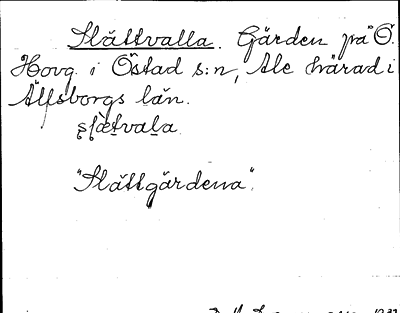 Slåttvalla. Gärden på Ö.
Hovg. i Östad s:n, Ale härad i
Älfsborgs län.
slætvala
"Slåttgärdena".